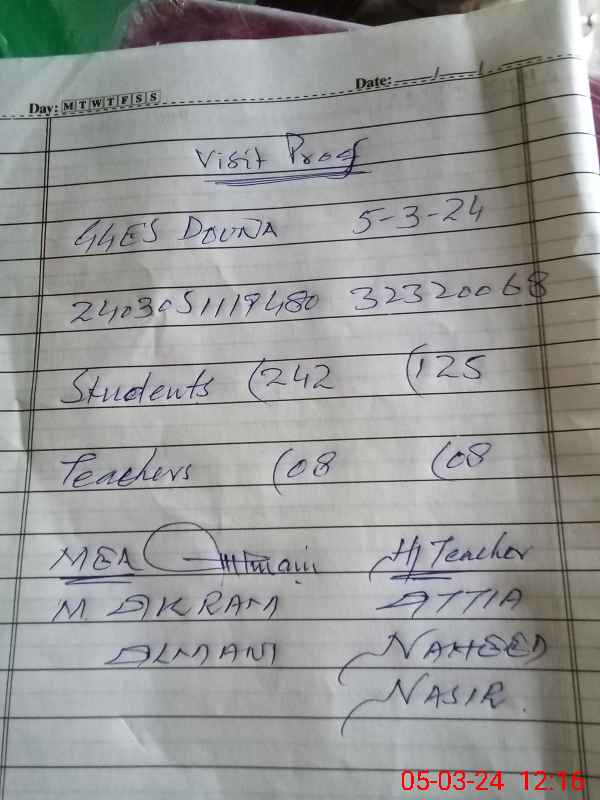 Day: M T W T F S S Date: / /
Visit Proof
GGES DOUNA 5-3-24
2403051119480 32320068
Students (242 (125
Teachers (08 (08
MEA H/Teacher
M. AKRAM ATTIA
ALMANI NAHEED
NASIR.
05-03-24 12:16